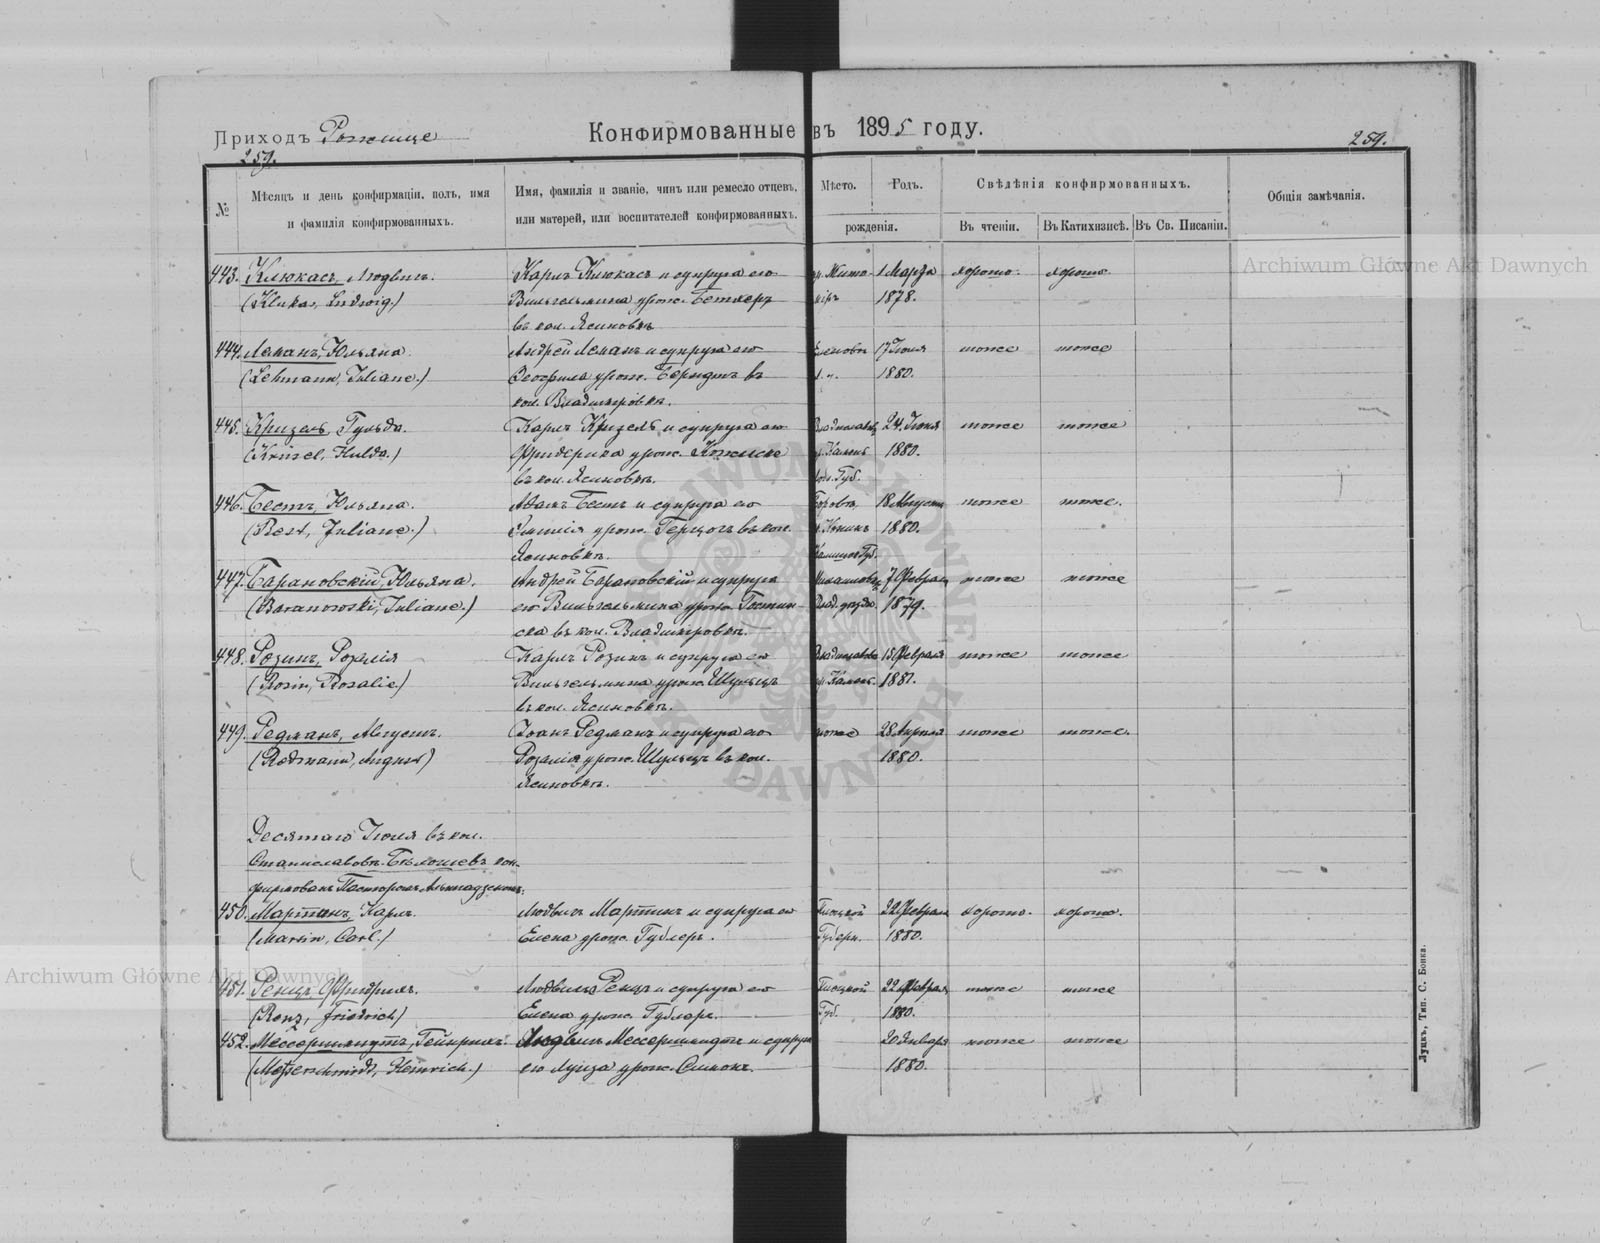 Приходъ Рожище
Конфирмованные въ 1895 году.
259.
259.
№
Мѣсяцъ и день конфирмаціи, полъ, имя
и фамилія конфирмованныхъ.
Имя, фамилія и званіе, чинъ или ремесло отцевъ,
или матерей, или воспитателей конфирмованныхъ.
Мѣсто.
Родъ.
рожденія.
Свѣдѣнія конфирмованныхъ.
Въ чтеніи.
Въ Катихизисѣ.
Въ Св. Писаніи.
Общія замѣчанія.
443. Клюкасъ, Людвигъ. Карлъ Клюкасъ и супруга его Жито- 1 Марта хорошо. хорошо.
(Klukas, Ludwig.) Вильгельмина урож. Беткеръ міръ 1878.
въ кол. Ясиновкѣ
444. Леманъ, Юльяна. Андрей Леманъ и супруга его 17 Іюня тоже тоже
(Lehmann, Juliane.) Теофила урож. въ 1880.
кол. Владимѣровкѣ.
445. Кризель, Гульда. Карлъ Кризель и супруга его 24 Іюня тоже тоже
(Krüsel, Hulda.) Фридерика урож. 1880.
въ кол. Ясиновкѣ. Губ.
446. Бестъ, Юльяна. Бестъ и супруга его 18 Августа тоже тоже.
(Best, Juliane.) Эмилія урож. Герцогъ въ кол. 1880.
Ясиновкѣ. Губ.
447. Барановскій, Юльяна. Андрей Барановскій и супруга 7 Февраля тоже тоже
(Baranowski, Juliane.) его Вильгельмина урож. 1879.
въ кол. Владимѣровкѣ.
448. Розинъ, Розалія Карлъ Розинъ и супруга его 15 Февраля тоже тоже
(Rosin, Rosalie) Вильгельмина урож. Шульцъ 1881.
въ кол. Ясиновкѣ.
449. Редманъ, Августъ. Редманъ и супруга его тоже 28 Апрѣля тоже тоже.
(Redmann, August) Розалія урож. Шульцъ въ кол. 1880.
Ясиновкѣ.
Десятаго Іюля въ кол.
Станиславовкѣ кон-
фирмованъ Пасторомъ
450. Мартинъ, Карлъ. Людвигъ Мартинъ и супруга его Плоцкой 22 Февраля хорошо. хорошо.
(Martin, Carl.) Елена урож. Гублеръ. Губерн. 1880.
451. Ренцъ Фридрихъ. Людвигъ Ренцъ и супруга его Плоцкой 22 Февраля тоже тоже
(Renz, Friedrich) Елена урож. Губ. 1880.
452. Мессершмитъ, Гейнрихъ. Людвигъ Мессершмидтъ и супруга 20 Января тоже тоже
(Messerschmidt, Heinrich.) его Луиза урож. Симонъ. 1880.
Луцкъ, Тип. С. Бонка.
Archiwum Główne Akt Dawnych
Archiwum Główne Akt Dawnych
ARCHIWUM GŁÓWNE AKT DAWNYCH